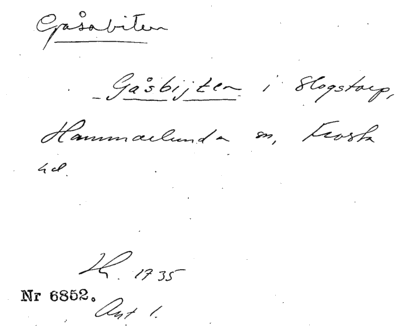 Gåsabiten
Gåsbijten i Slogstorp,
Hammarlunda sn, Frosta
hd.
Lh. 1735
Nr 6852.
Ant 1.